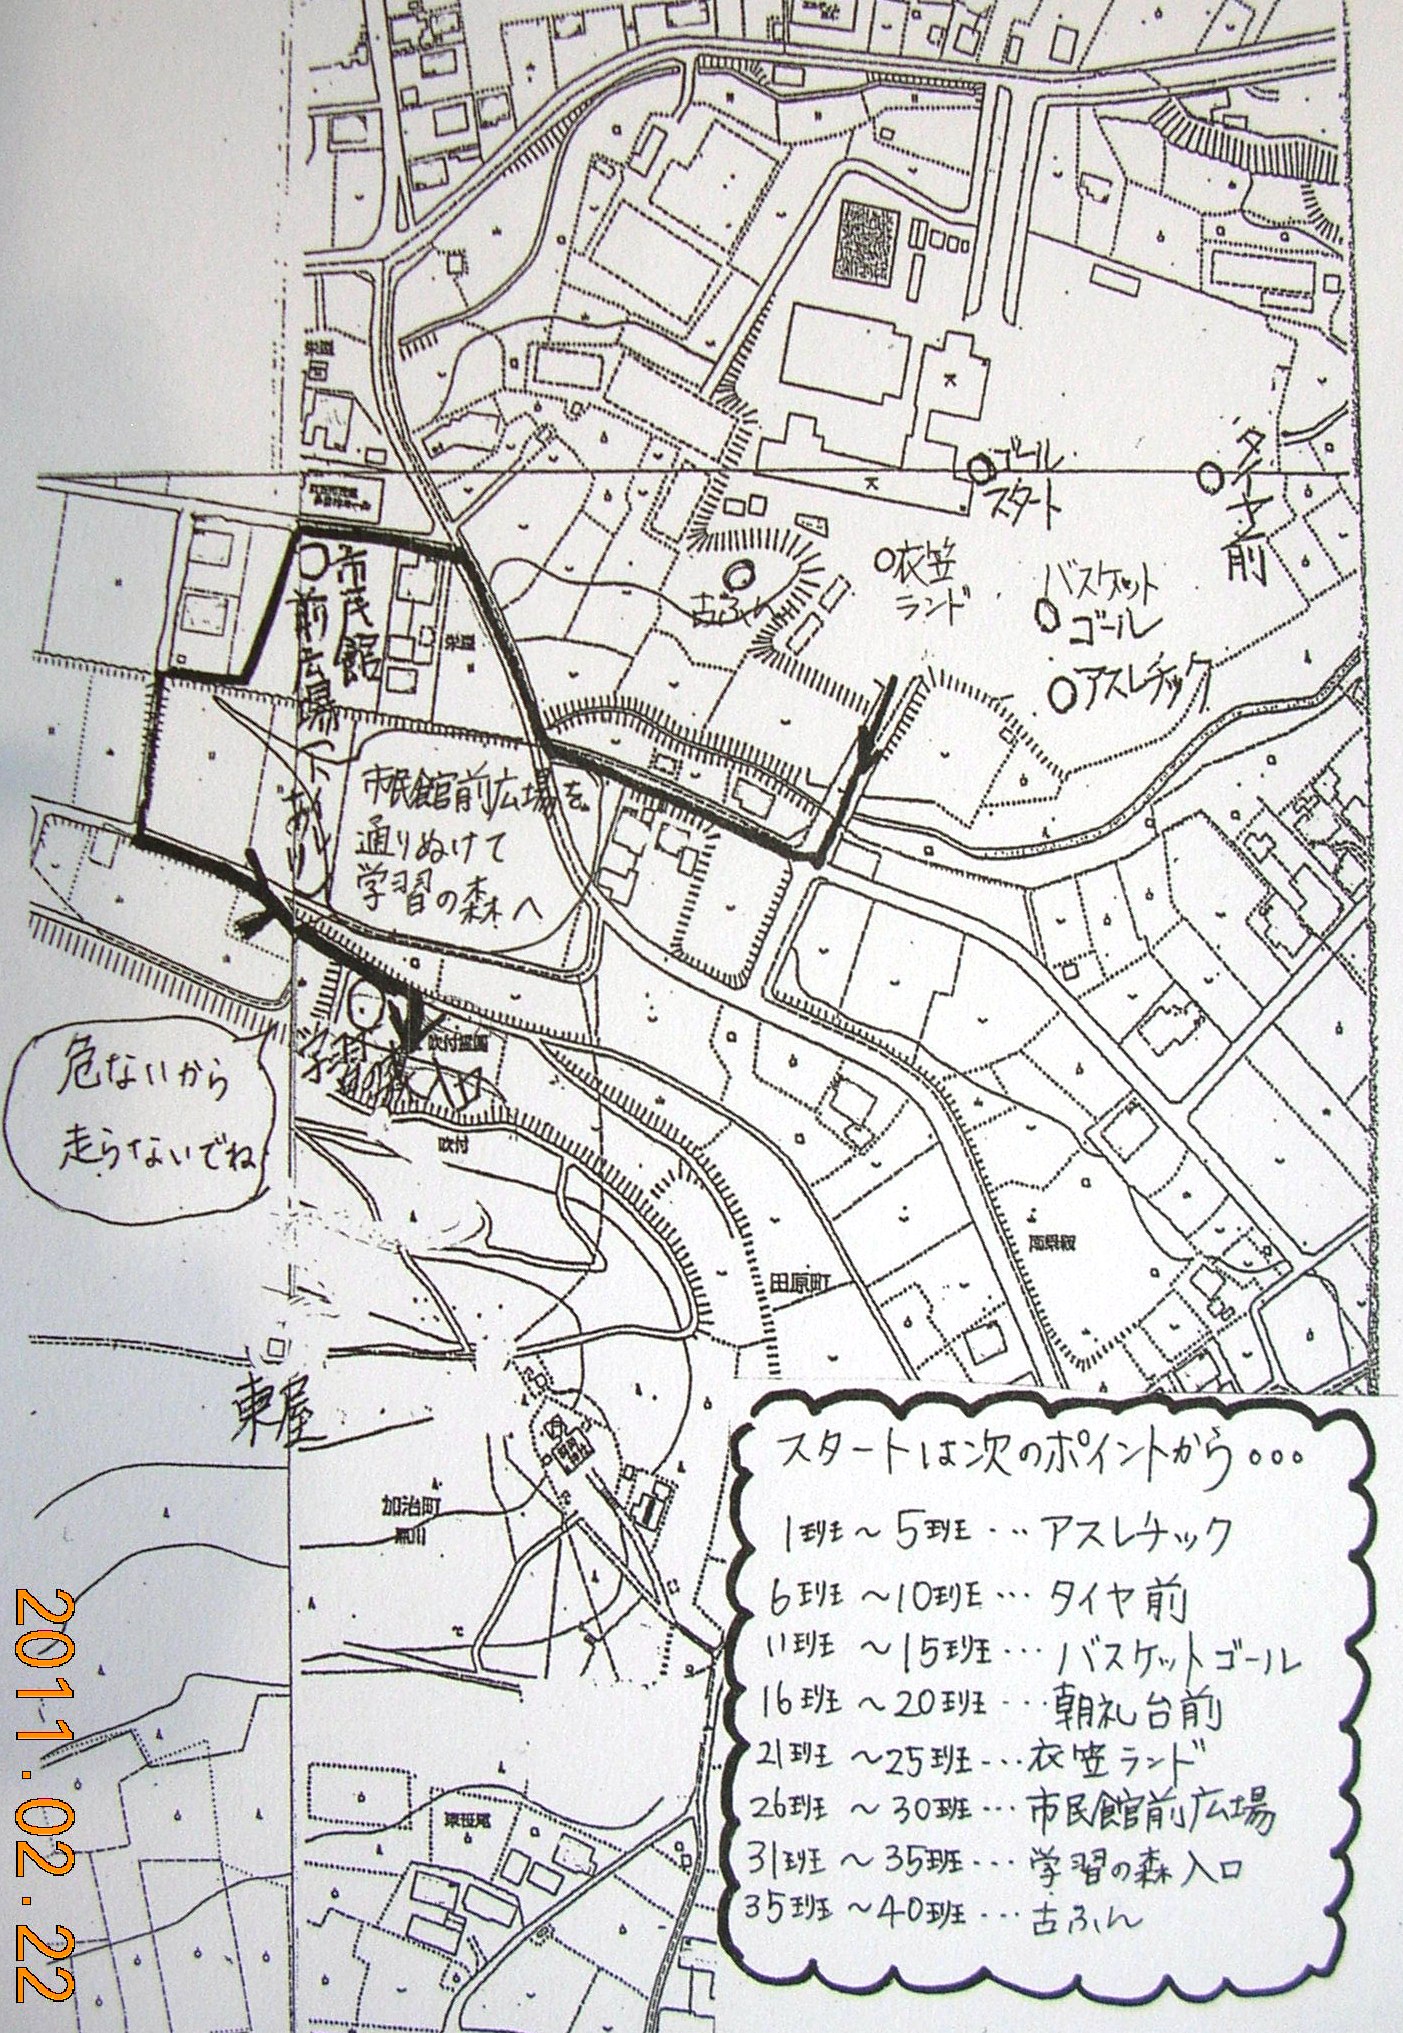 ゴール
スタート
タイヤ前
衣笠
ランド
バスケット
ゴール
アスレチック
古ふん
市民館
前広場
市民館前広場を
通りぬけて
学習の森へ
危ないから
走らないでね
学習の森入口
吹付
田原町
東屋
加治町
スタートは次のポイントから...
1班～5班…アスレチック
6班～10班…タイヤ前
11班～15班…バスケットゴール
16班～20班…朝礼台前
21班～25班…衣笠ランド
26班～30班…市民館前広場
31班～35班…学習の森入口
35班～40班…古ふん
2011.02.22